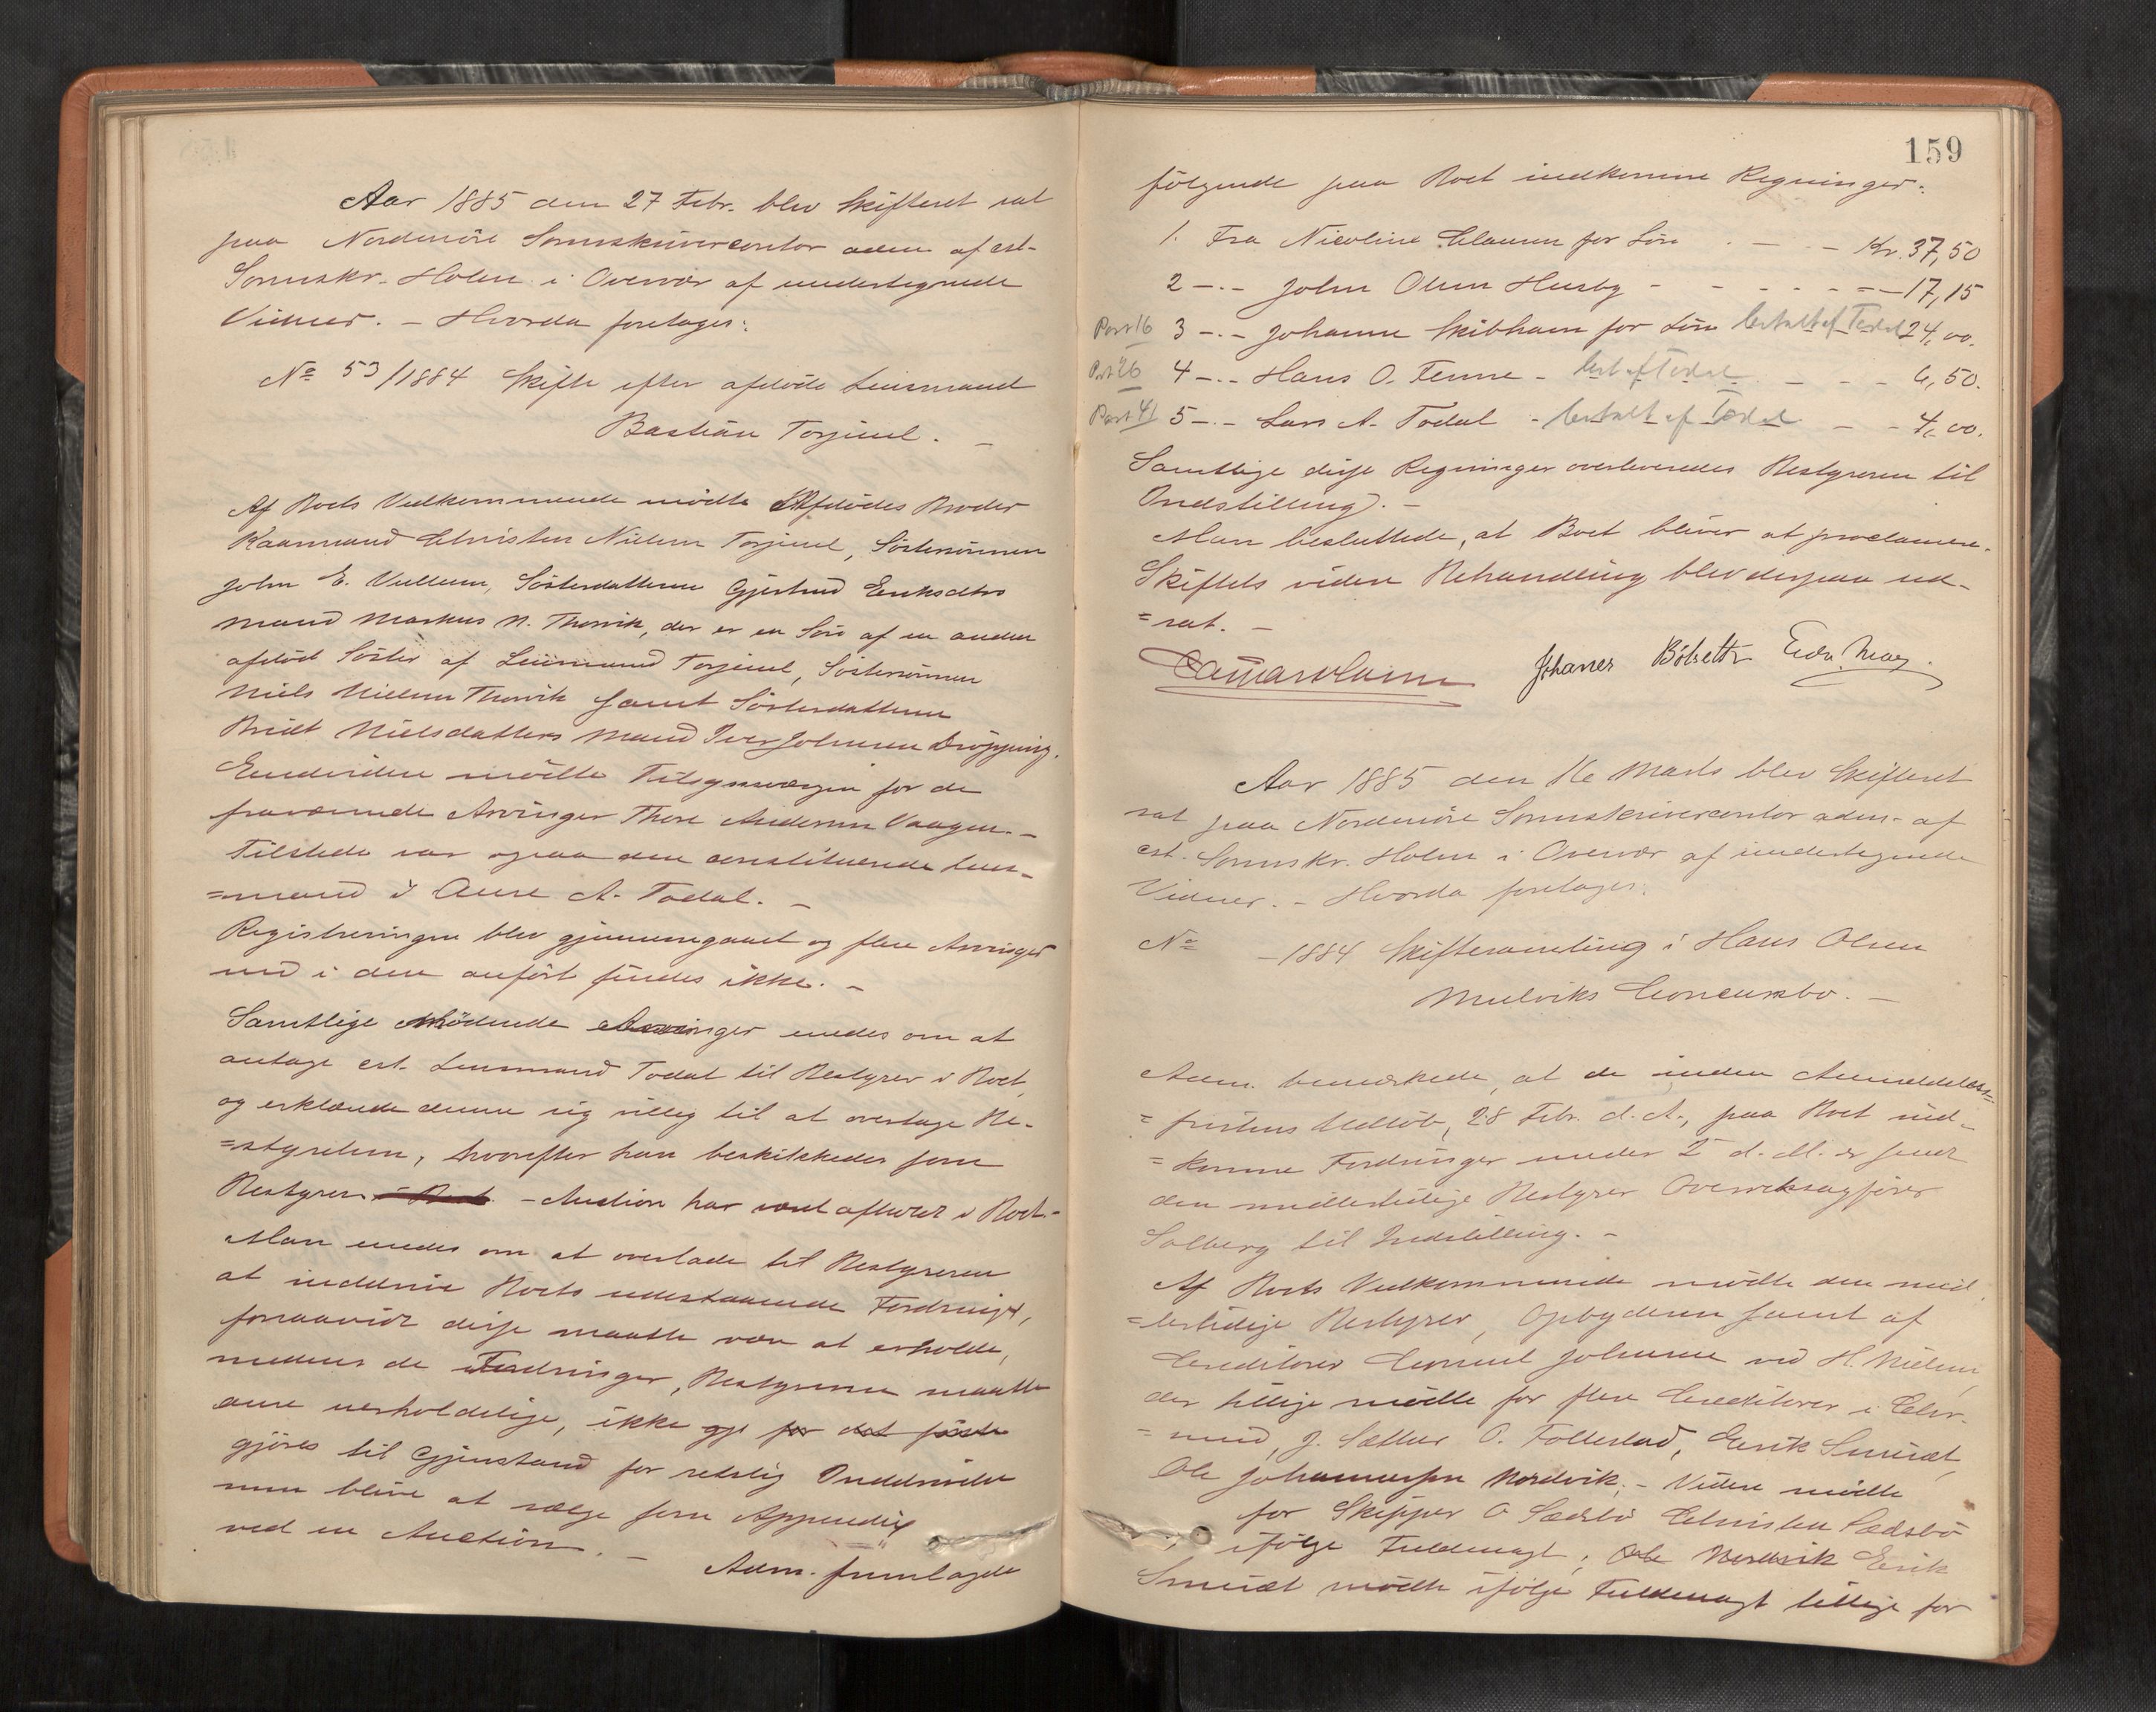 Aar 1885 den 27 Febr. blev Skifteret sat
paa Nordmöre Sorenskrivercontor adm. af cst.
Sorenskr. Holm i Overvær af undertegnede
Vidner. – Hvorda foretoges:
No 53/1884 Skifte efter afdöde Lensmand
Bastian Torjuul. –
Af Boets Vedkommende mödte Afdödes Broder
Kaarmand Christen Nielsen Torjuul, Söstersönnen
John E. Vullum, Sösterdatteren Gjertrud Eriksdtrs
Mand Markus N. Thorvik, der er en Sön af en anden
afdöd Söster af Lensmand Torjuul, Söstersönnen
Niels Nielsen Thorvik samt Sösterdatteren
Britt Nielsdatters Mand Iver Johnsen Dröpping.
Endvidere mödte Tilsynsværgen for de
fraværende Arvinger Thore Andersen Vaagen. –
Tilstede var ogsaa den constituerede Lens-
=mand i Aure A. Todal. –
Registreringen blev gjennemgaaet og flere Arvinger
end i den anfört findes ikke. –
Samtlige Mödende Arvinger enedes om at
antage cst. Lensmand Todal til Bestyrer i Boet,
og erklærede denne sig villig til at overtage Be-
=styrelsen, hvorefter han beskikkedes som
Bestyrer i Boet. – Auction har været afholdt i Boet. –
Man enedes om at overlade til Bestyreren
at inddrive Boets udestaaende Fordringer,
forsaavidt disse maatte være at erholde,
medens de Fordringer, Bestyreren maatte
anse uerholdelige, ikke gjö for det förste
gjöres til Gjenstand for retslig Inddrivelse
men blive at sælge som Appendix
ved en Auction. –
Adm. fremlagde
159
fölgende paa Boet indkomne Regninger:
1. Fra Nicoline Clausen for Lön . – – Kr. 37,50
2 –.– John Olsen Husby – - - - - – 17,15
Post 16 3 –.– Johanne Skibhavn for Lön betalt af Todal 24,00.
Post 26 4 –.– Hans O. Tenne – bet. af Todal – – - 6,50.
Post 41 5 –.– Lars A. Todal - betalt af Todal – - 4,00.
Samtlige disse Regninger overleveredes Bestyreren til
Indstilling. –
Man besluttede, at Boet bliver at proclamere.
Skiftets videre Behandling blev derpaa ud-
=sat. –
Johannes Bölseth
Aar 1885 den 16 Marts blev Skifteret
sat paa Nordmöre Sorenskrivercontor adm. af
cst. Sorenskr. Holm i Overvær af undertegnede
Vidner. – Hvorda foretoges:
No – 1884 Skiftesamling i Hans Olsen
Mulviks Concursbo. –
Adm. bemærkede, at de inden Anmeldelses=
=fristens Udlöb, 28 Febr. d. A., paa Boet ind-
=komne Fordringer under 2 d. M. er sendt
den midlertidige Bestyrer Overretssagförer
Solberg til Indstilling. –
Af Boets Vedkommende mödte den mid-
=lertidige Bestyrer, Opbyderen samt af
Creditorer Consul Johnsen ved H. Nielsen,
der tillige mödte for flere Creditorer i Chr.
=sund, J. Sætter O. Follestad, Erik Smidt,
Ole Johannessen Nordvik. – Videre mödte
for Skipper O Sædsbö Christen Sædsbö
ifölge Fuldmagt; Ole Nordvik Erik
Smidt mödte ifölge Fuldmagt tillige for